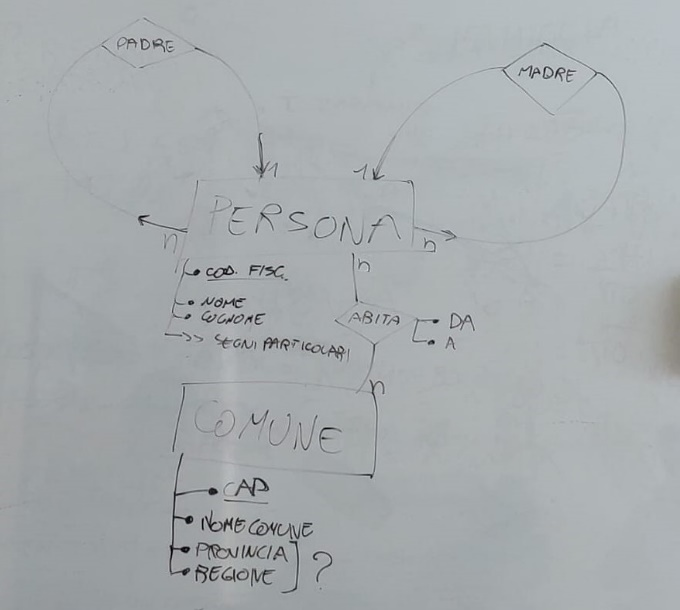 PADRE
MADRE
1
1
PERSONA
n
n
COD. FISC.
n
NOME
COGNOME
ABITA
DA
A
SEGNI PARTICOLARI
n
COMUNE
CAP
NOME COMUNE
PROVINCIA
REGIONE
?